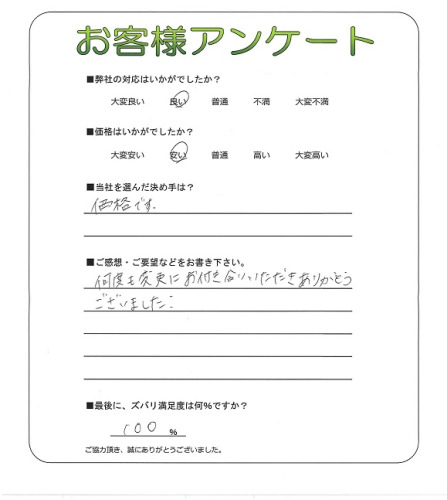 お客様アンケート
■弊社の対応はいかがでしたか?
大変良い 良い 普通 不満 大変不満
■価格はいかがでしたか?
大変安い 安い 普通 高い 大変高い
■当社を選んだ決め手は?
価格です.
■ご感想・ご要望などをお書き下さい。
何度も変更にお付き合いいただきありがとう
ございました:
■最後に、ズバリ満足度は何%ですか?
100 %
ご協力頂き、誠にありがとうございました。